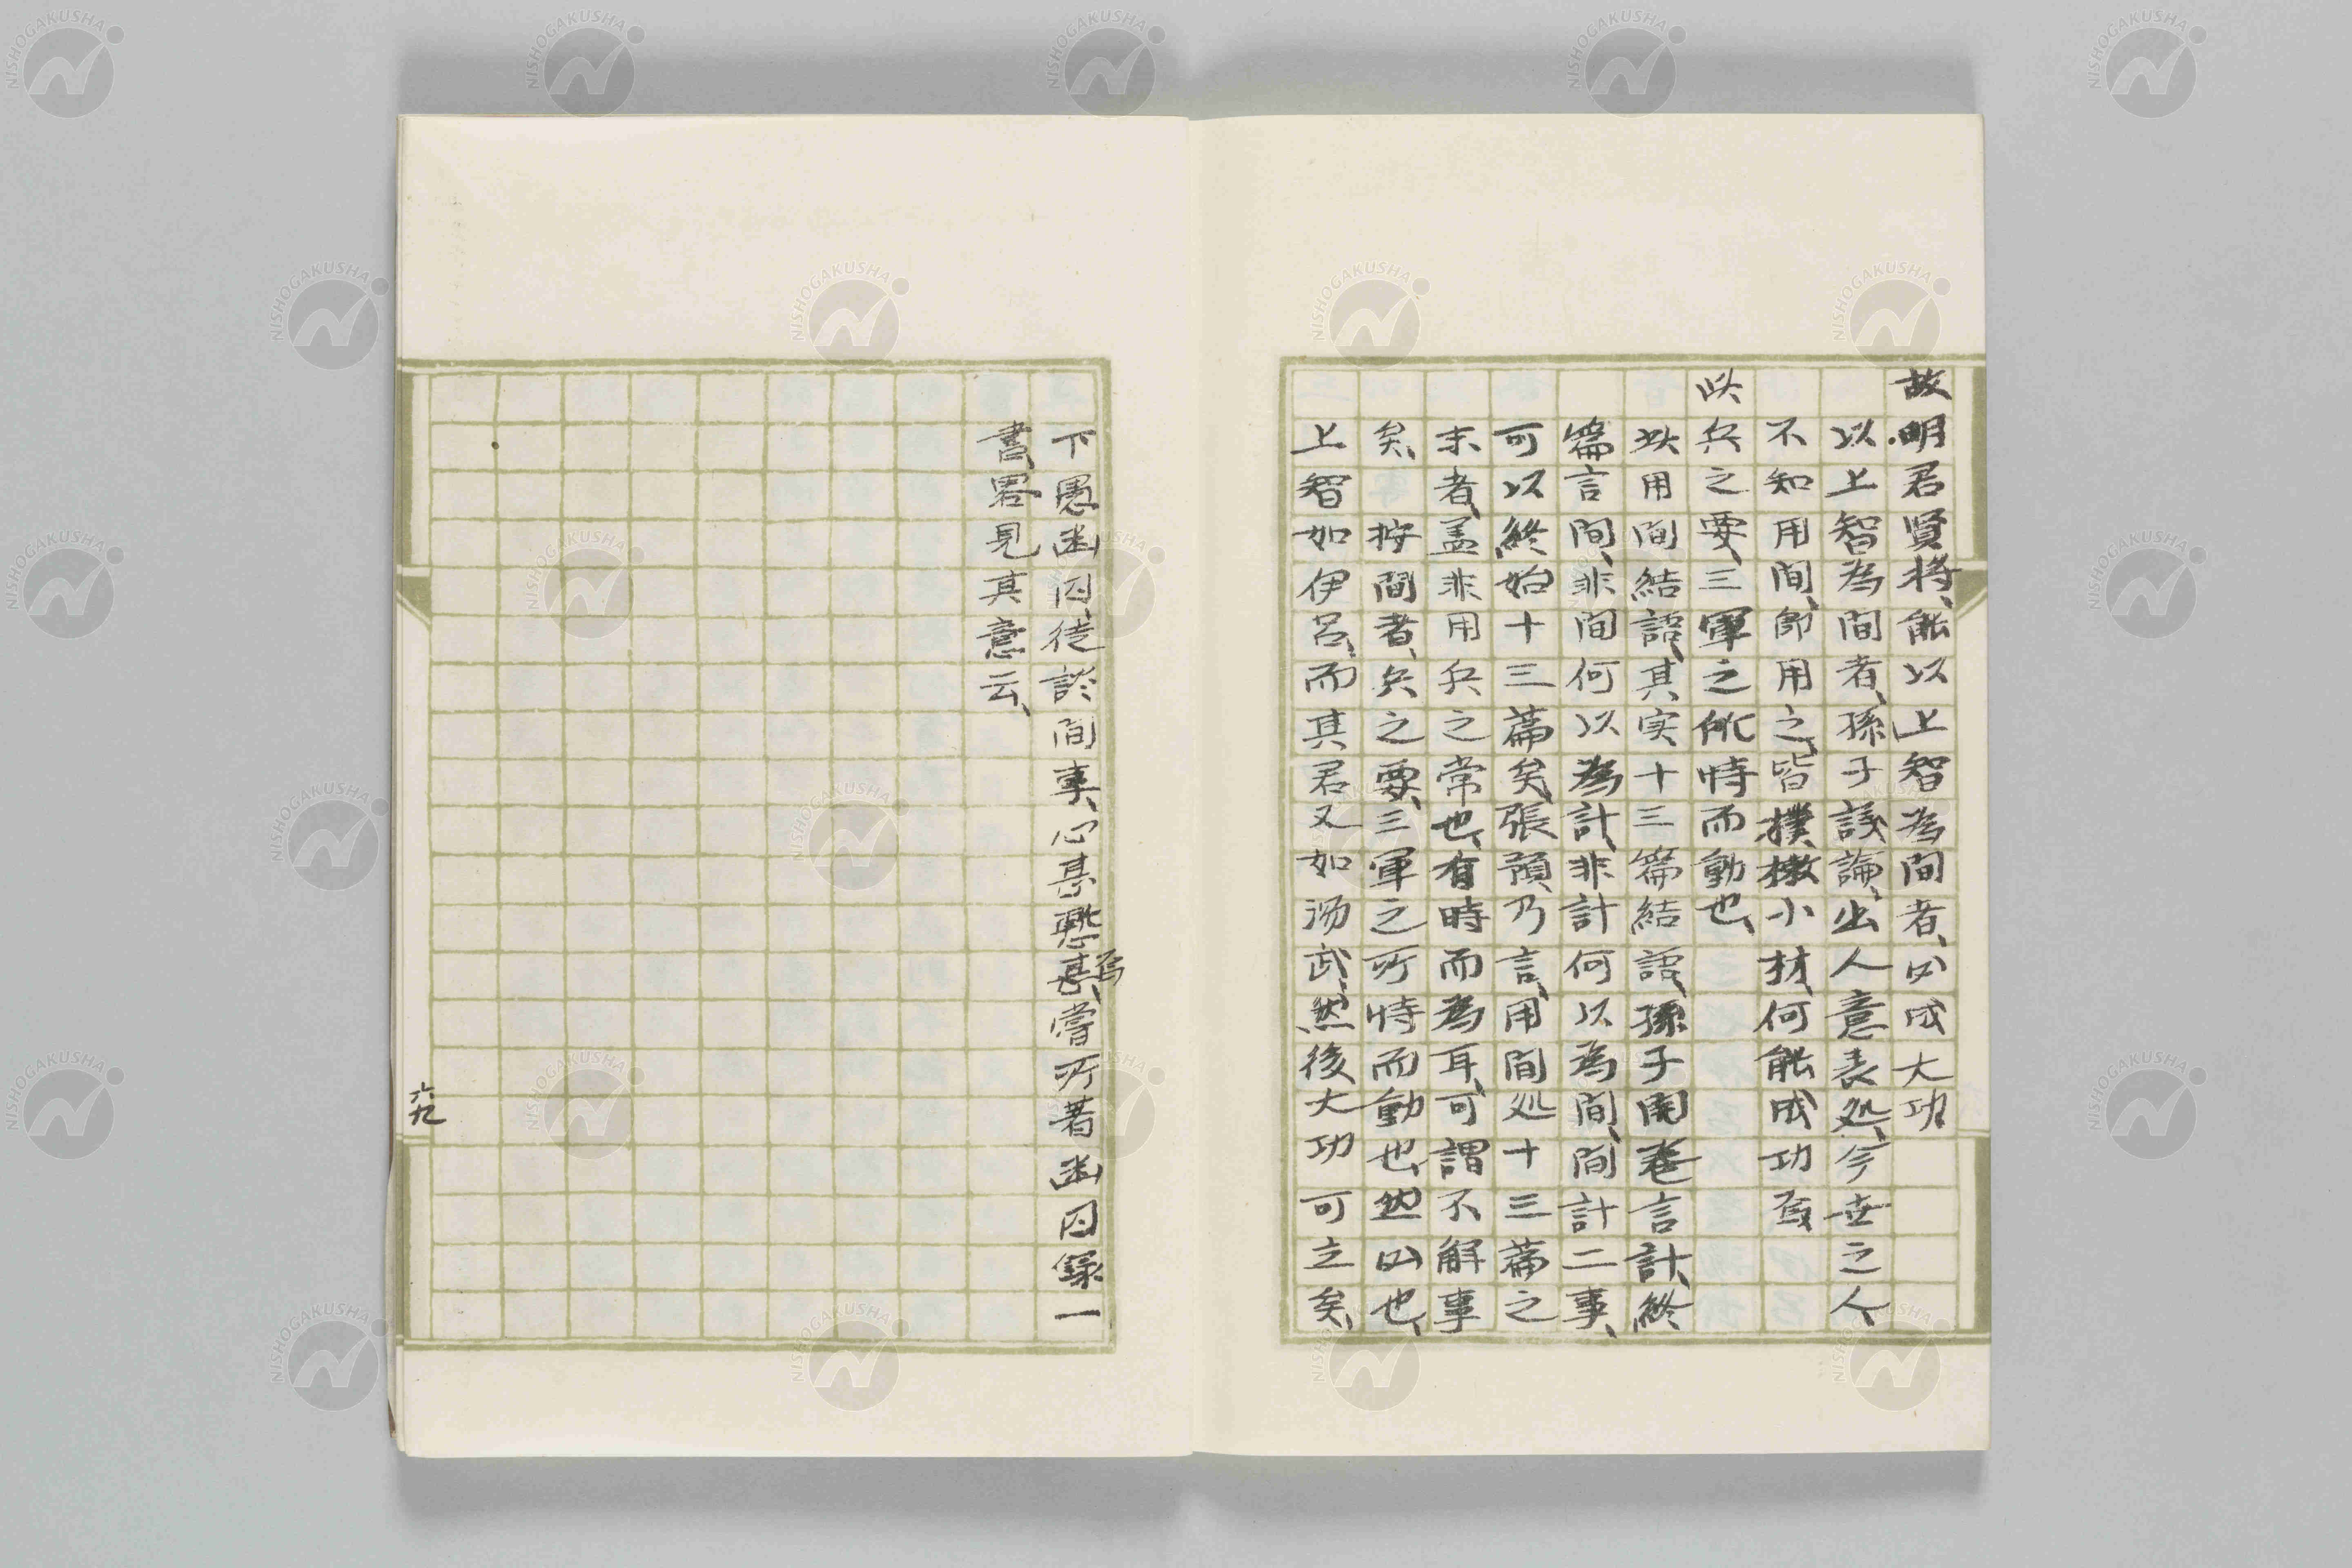 故明君賢将、能以上智為間者、必成大功
以上智為間者、孫子議論、出人意表処、今世之人、
不知用間、即用之、皆撲樕小材、何能成功焉
此兵之要、三軍之所恃而動也、
此用間結語、其実十三篇結語、孫子開巻言計、終
篇言間、非間何以為計、非計何以為間、間計二事、
可以終始十三篇矣、張預乃言、用間処十三篇之
末者、蓋非用兵之常也、有時而為耳、可謂不解事
矣、按間者、兵之要、三軍之所恃而動也、然必也、
上智如伊呂、而其君又如湯武、然後大功可立矣、
下愚幽囚、徒談間事、心甚愁甚焉、嘗所著幽囚録一
書、畧見其意云、
六九
NISHOGAKUSHA